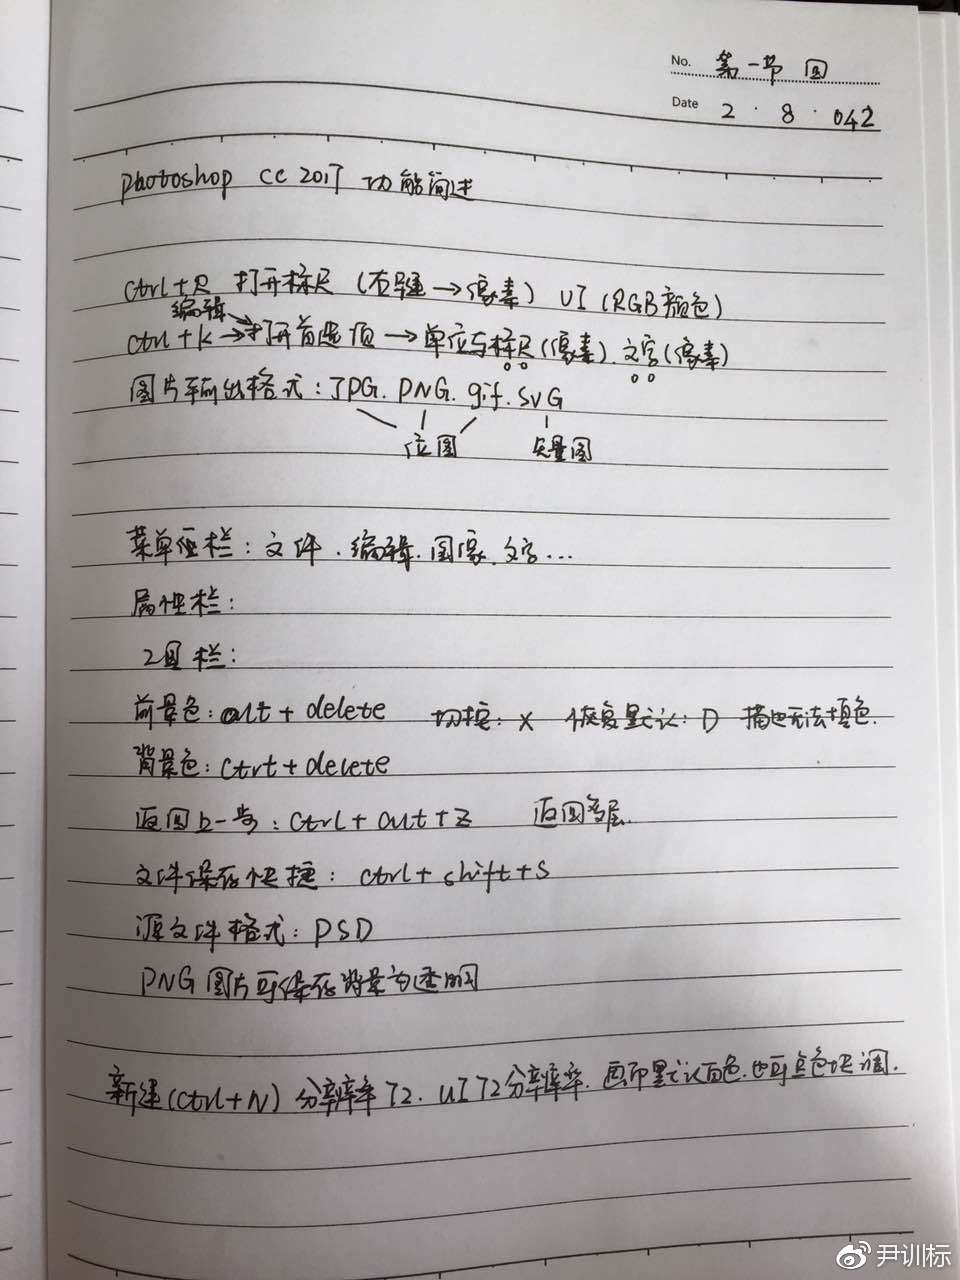 No. 第一节
Date 2 · 8 · 042
Photoshop CC 2017 功能简述
Ctrl+R 打开标尺 (右键→像素) UI (RGB颜色)
编辑
Ctrl+K→打开首选项→单位与标尺(像素).文字(像素)
图片输出格式:JPG.PNG.gif.SVG
位图 矢量图
菜单栏:文件.编辑.图像.文字...
属性栏:
工具栏:
前景色:alt+delete 切换:X 恢复默认:D 无法填色.
背景色:Ctrl+delete
返回上一步:Ctrl+alt+Z 返回多层.
文件保存快捷:Ctrl+shift+S
源文件格式:PSD
PNG图片可保存背景为透明
新建(Ctrl+N) 分辨率72.UI72分辨率.画布默认白色.也可点色块调.
尹训标